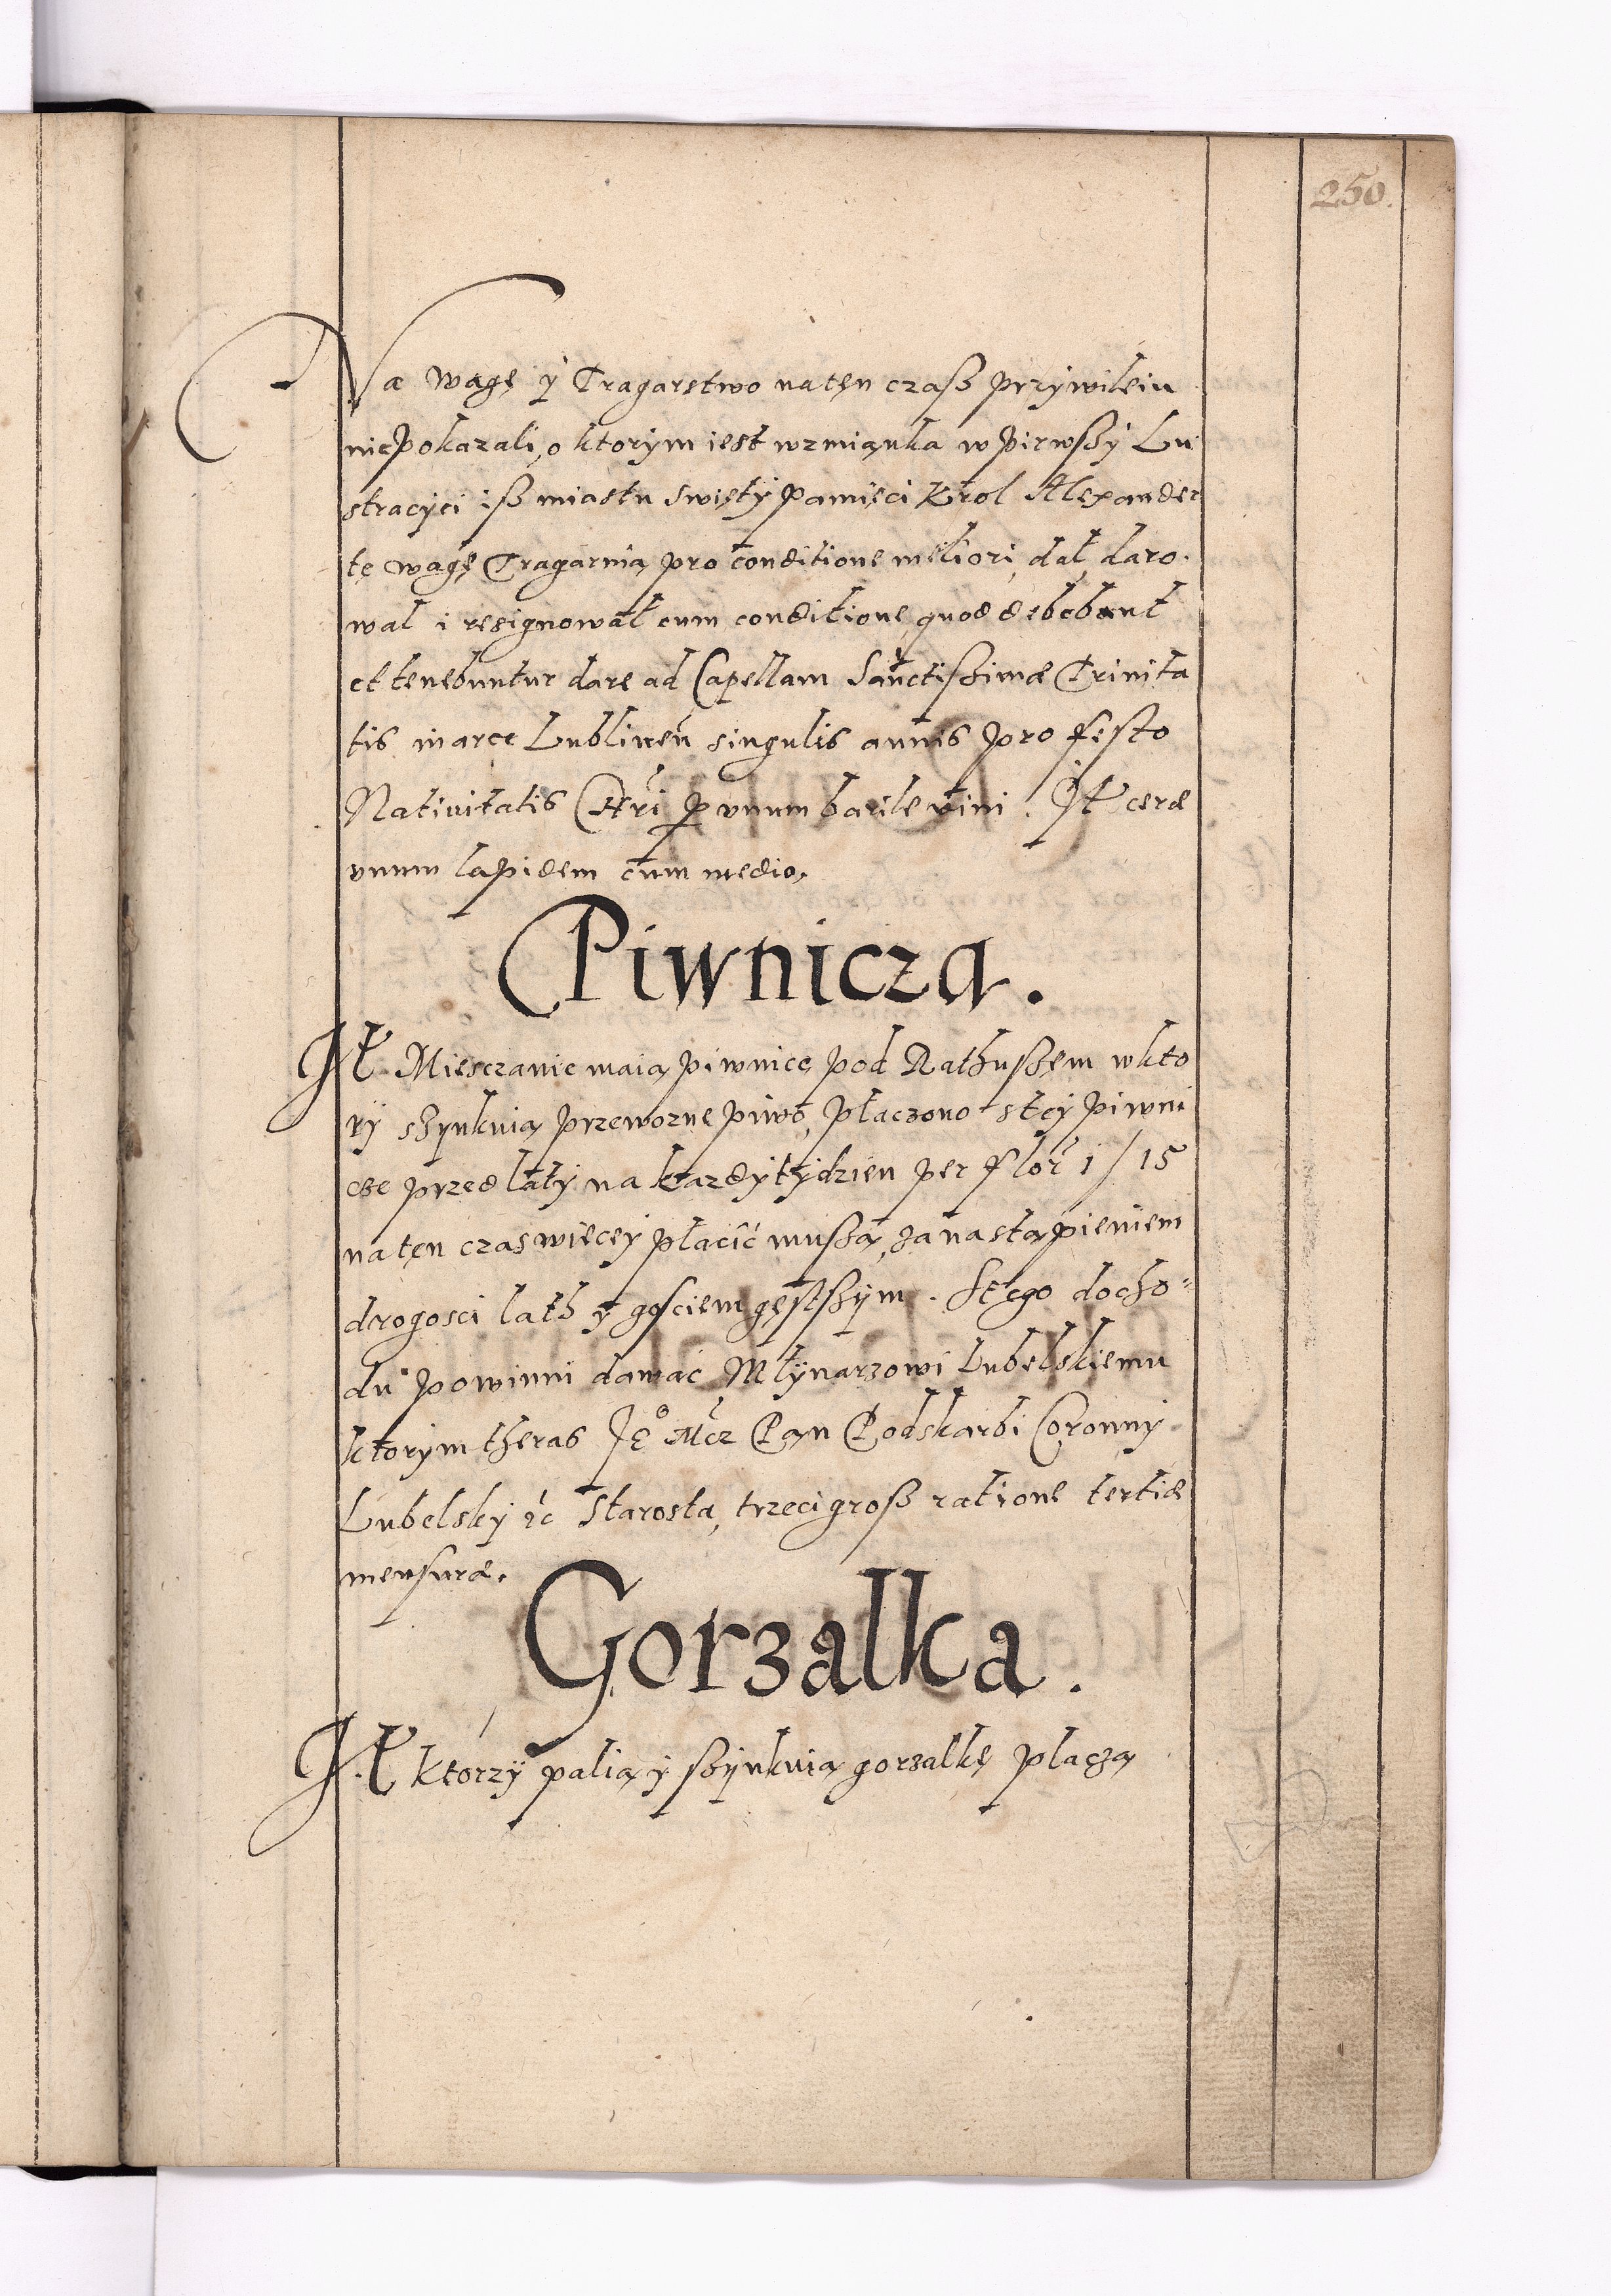 250.
Na wagę ÿ Tragarstwo na tęn czaß przÿwileiu
nie pokazali, o ktorÿm iest wzmiąnka w pirwßÿ Lu
stracÿei iß miastu swiętÿ pamięci Krol Alexander
tę wagę Tragarnią pro conditione meliori, dał, daro-
wał i resignował cum conditione, quod debebunt
et tenebuntur dare ad Capellam Sanctissimæ Trinita
tis in arce Lublineń singulis annis pro festo
Natiuitatis Chri p vnum barile vini. It ceræ
vnum lapidem cum medio.
Piwnicza.
It Miesczanie maią piwnicę pod Rathußem w kto
rÿ sżÿnkuią przewozne piwo, płaczono s teÿ piwni
cze przed latÿ na kazdÿ tÿdzien per flor 1/15
na tęn czas więceÿ płacić mußą, za nastąpieniem
drogosci lath ÿ gosciem gęstßÿm. S tego docho=
du powinni dawać Młÿnarzowi Lubelskiemu
ktorÿm theras Je° Mcz Pan Podskarbi Coronnÿ
Lubelskÿ ꝛc Starosta, trzeci groß ratione tertiæ
mensuræ.
Gorzalka.
It ktorzÿ palią ÿ sżÿnkuią gorzalkę płaczą